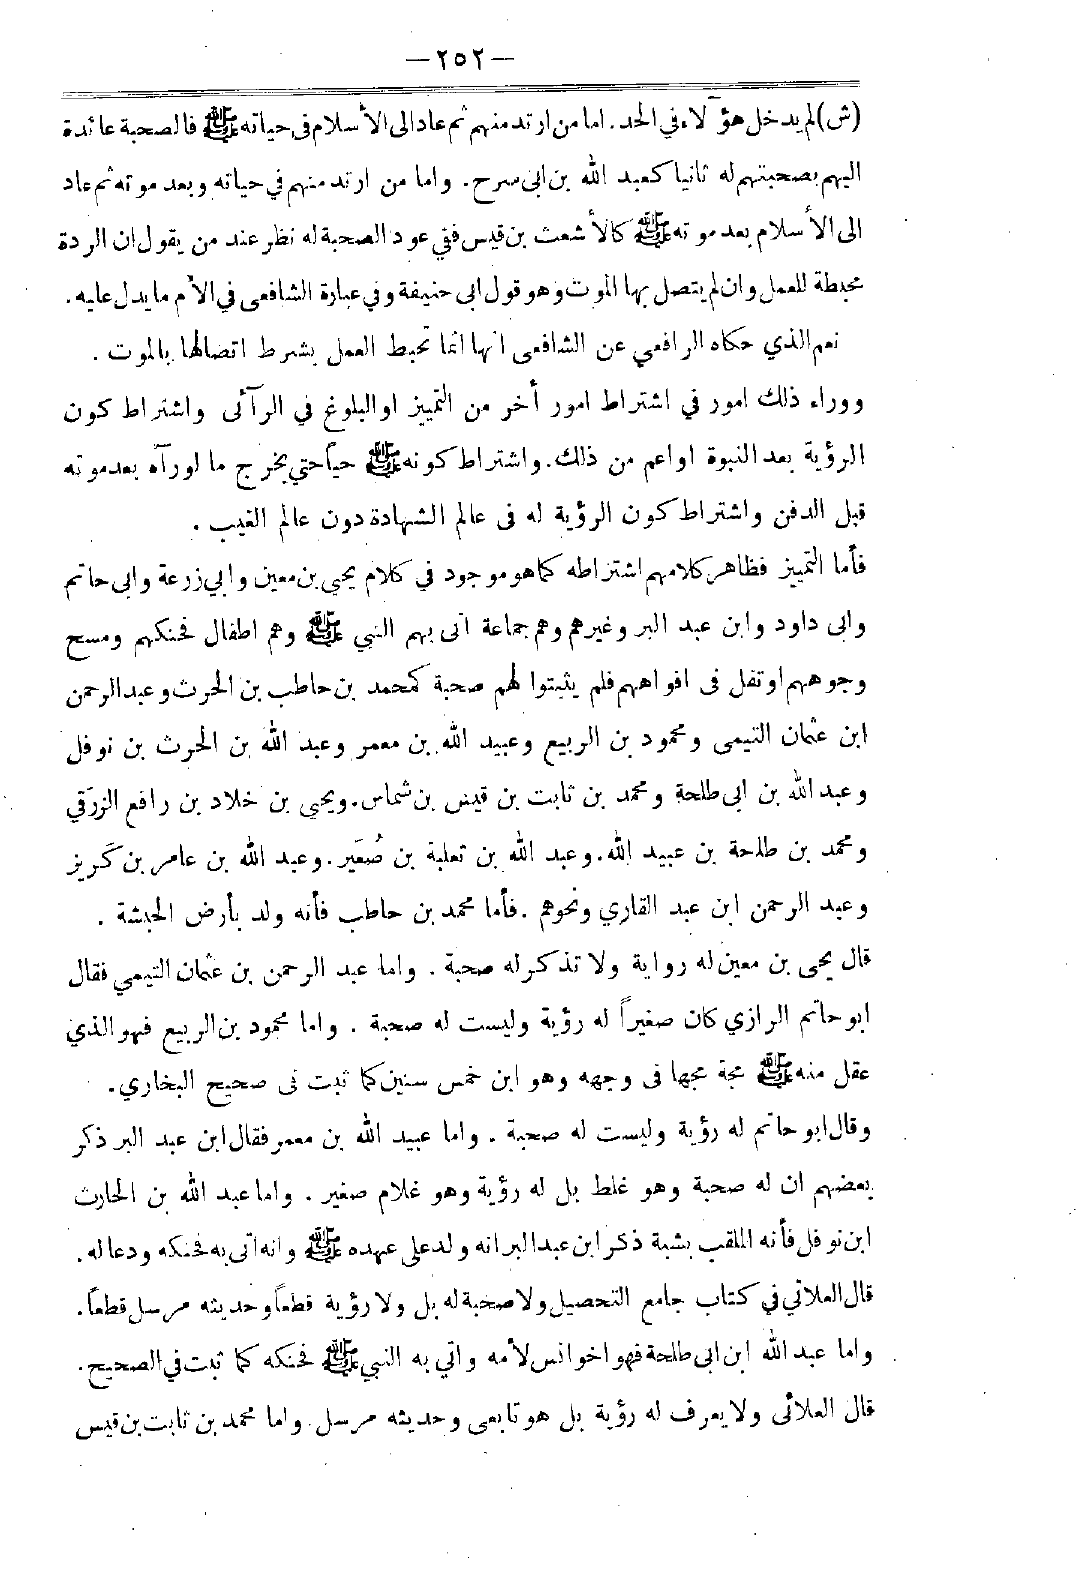 — ٢٥٢ —
(ش) لم يدخل هؤلاء في الحد. اما من ارتد منهم ثم عاد الى الأسلام في حياته ﷺ فالصحبة عائدة
اليهم بصحبتهم له ثانيا كعبد الله بن ابى سرح. واما من ارتد منهم في حياته وبعد موته ثم عاد
الى الأسلام بعد موته ﷺ كالأشعث بن قيس ففي عود الصحبة له نظر عند من يقول ان الردة
محبطة للعمل وان لم يتصل بها الموت وهو قول ابى حنيفة وفي عبارة الشافعى في الأم ما يدل عليه.
نعم الذي حكاه الرافعي عن الشافعى انها انما تحبط العمل بشرط اتصالها بالموت.
ووراء ذلك امور في اشتراط امور أخر من التمييز او البلوغ في الرآئى واشتراط كون
الرؤية بعد النبوة او اعم من ذلك. واشتراط كونه ﷺ حياً حتي يخرج ما لو رآه بعد موته
قبل الدفن واشتراط كون الرؤية له فى عالم الشهادة دون عالم الغيب.
فأما التمييز فظاهر كلامهم اشتراطه كما هو موجود في كلام يحيى بن معين وابي زرعة وابى حاتم
وابى داود وابن عبد البر وغيرهم وهم جماعة اتى بهم النبي ﷺ وهم اطفال فحنكهم ومسح
وجوههم او تفل فى افواههم فلم يثبتوا لهم صحبة كمحمد بن حاطب بن الحرث وعبد الرحمن
ابن عثمان التيمى ومحمود بن الربيع وعبيد الله بن معمر وعبد الله بن الحرث بن نوفل
وعبد الله بن ابى طلحة ومحمد بن ثابت بن قيس بن شماس. ويحيى بن خلاد بن رافع الزرَقي
ومحمد بن طلحة بن عبيد الله. وعبد الله بن ثعلبة بن صُعَير. وعبد الله بن عامر بن كَريز
وعبد الرحمن ابن عبد القاري ونحوهم. فأما محمد بن حاطب فأنه ولد بأرض الحبشة.
قال يحيى بن معين له رواية ولا تذكر له صحبة. واما عبد الرحمن بن عثمان التيمي فقال
ابو حاتم الرازي كان صغيراً له رؤية وليست له صحبة. واما محمود بن الربيع فهو الذي
عقل منه ﷺ مجة مجها فى وجهه وهو ابن خمس سنين كما ثبت فى صحيح البخاري.
وقال ابو حاتم له رؤية وليست له صحبة. واما عبيد الله بن معمر فقال ابن عبد البر ذكر
بعضهم ان له صحبة وهو غلط بل له رؤية وهو غلام صغير. واما عبد الله بن الحارث
ابن نوفل فأنه الملقب بشبة ذكر ابن عبد البر انه ولد على عهده ﷺ وانه اتى به فحنكه ودعا له.
قال العلائي في كتاب جامع التحصيل ولا صحبة له بل ولا رؤية قطعاً وحديثه مرسل قطعاً.
واما عبد الله ابن ابى طلحة فهو اخو انس لأمه واتي به النبي ﷺ فحنكه كما ثبت في الصحيح.
قال العلائى ولا يعرف له رؤية بل هو تابعى وحديثه مرسل. واما محمد بن ثابت بن قيس